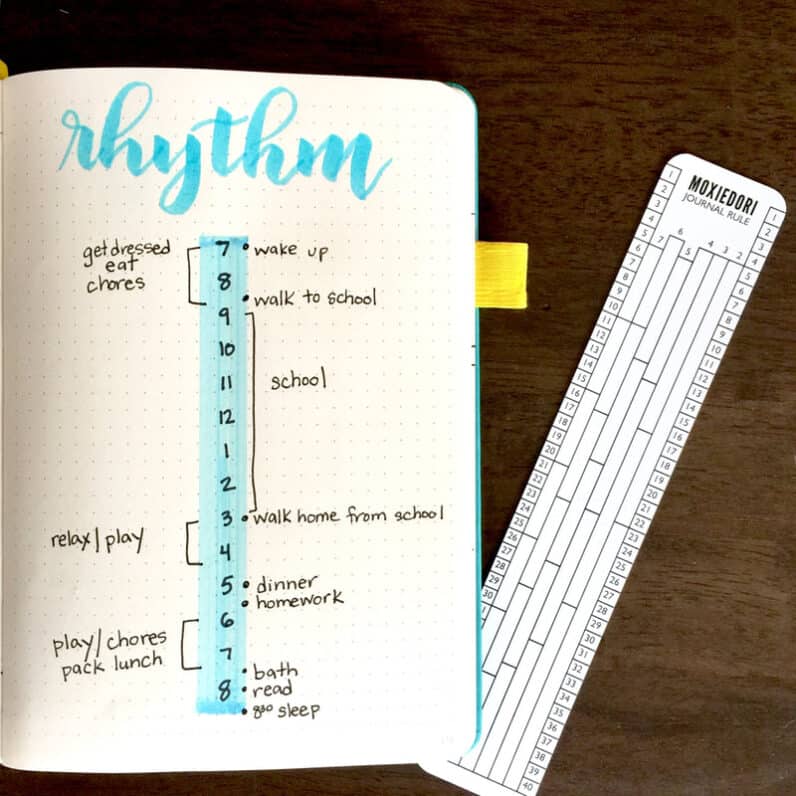 rhythm
get dressed
eat
chores
7 • wake up
8
• walk to school
9
10
11 school
12
1
2
3 • walk home from school
relax/play
4
5 • dinner
• homework
6
play/chores
pack lunch
7
• bath
8 • read
• 8³⁰ sleep
MOXIEDORI
JOURNAL RULE